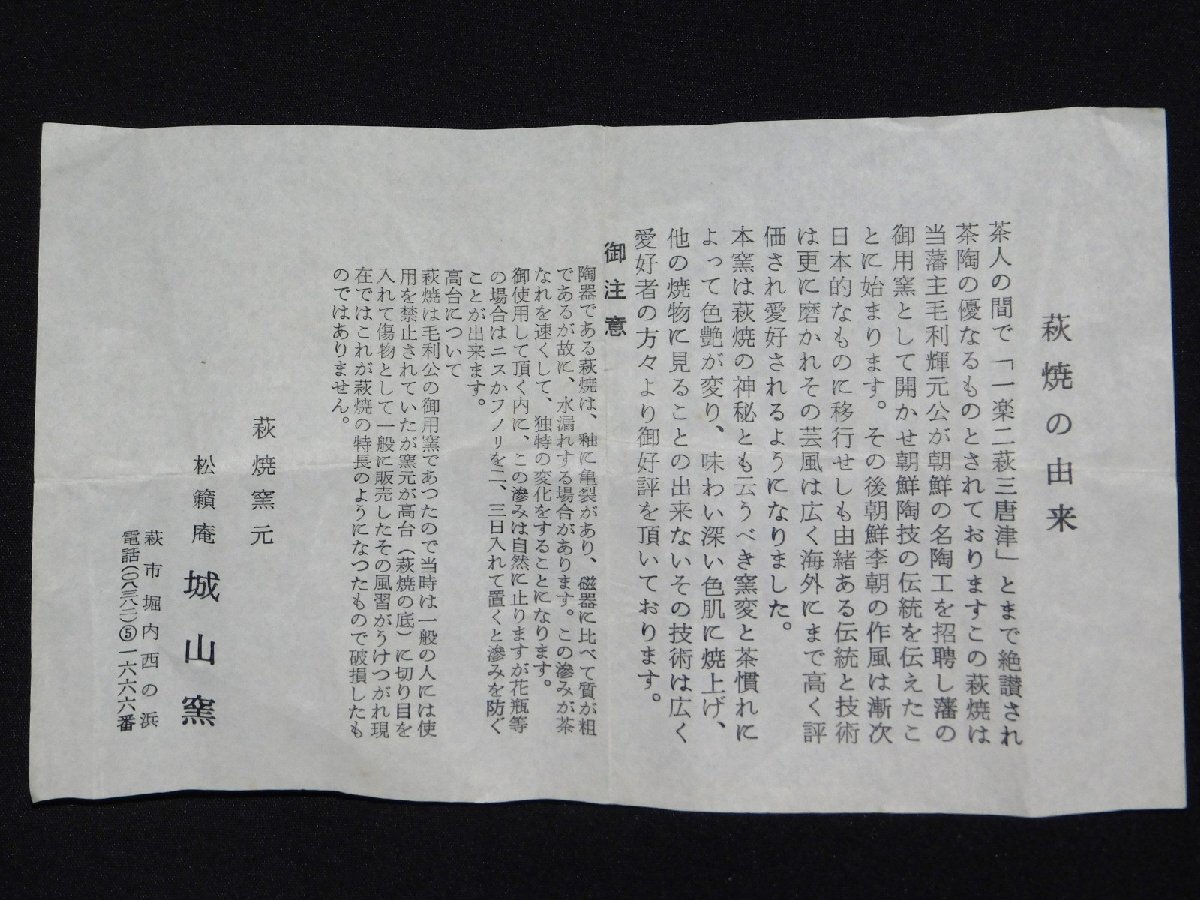 萩焼の由来
茶人の間で「一楽二萩三唐津」とまで絶讃され
茶陶の優なるものとされておりますこの萩焼は
当藩主毛利輝元公が朝鮮の名陶工を招聘し藩の
御用窯として開かせ朝鮮陶技の伝統を伝えたこ
とに始まります。その後朝鮮李朝の作風は漸次
日本的なものに移行せしも由緒ある伝統と技術
は更に磨かれその芸風は広く海外にまで高く評
価され愛好されるようになりました。
本窯は萩焼の神秘とも云うべき窯変と茶慣れに
よって色艶が変り、味わい深い色肌に焼上げ、
他の焼物に見ることの出来ないその技術は広く
愛好者の方々より御好評を頂いております。
御注意
陶器である萩焼は、釉に亀裂があり、磁器に比べて質が粗
であるが故に、水漏れする場合があります。この滲みが茶
なれを速くして、独特の変化をすることになります。
御使用して頂く内に、この滲みは自然に止りますが花瓶等
の場合はニスかフノリを二、三日入れて置くと滲みを防ぐ
ことが出来ます。
高台について
萩焼は毛利公の御用窯であつたので当時は一般の人には使
用を禁止されていたが窯元が高台(萩焼の底)に切り目を
入れて傷物として一般に販売したその風習がうけつがれ現
在ではこれが萩焼の特長のようになつたもので破損したも
のではありません。
萩焼窯元
松籟庵 城山窯
萩市堀内西の浜
電話(〇八三八二)⑤一六六六番